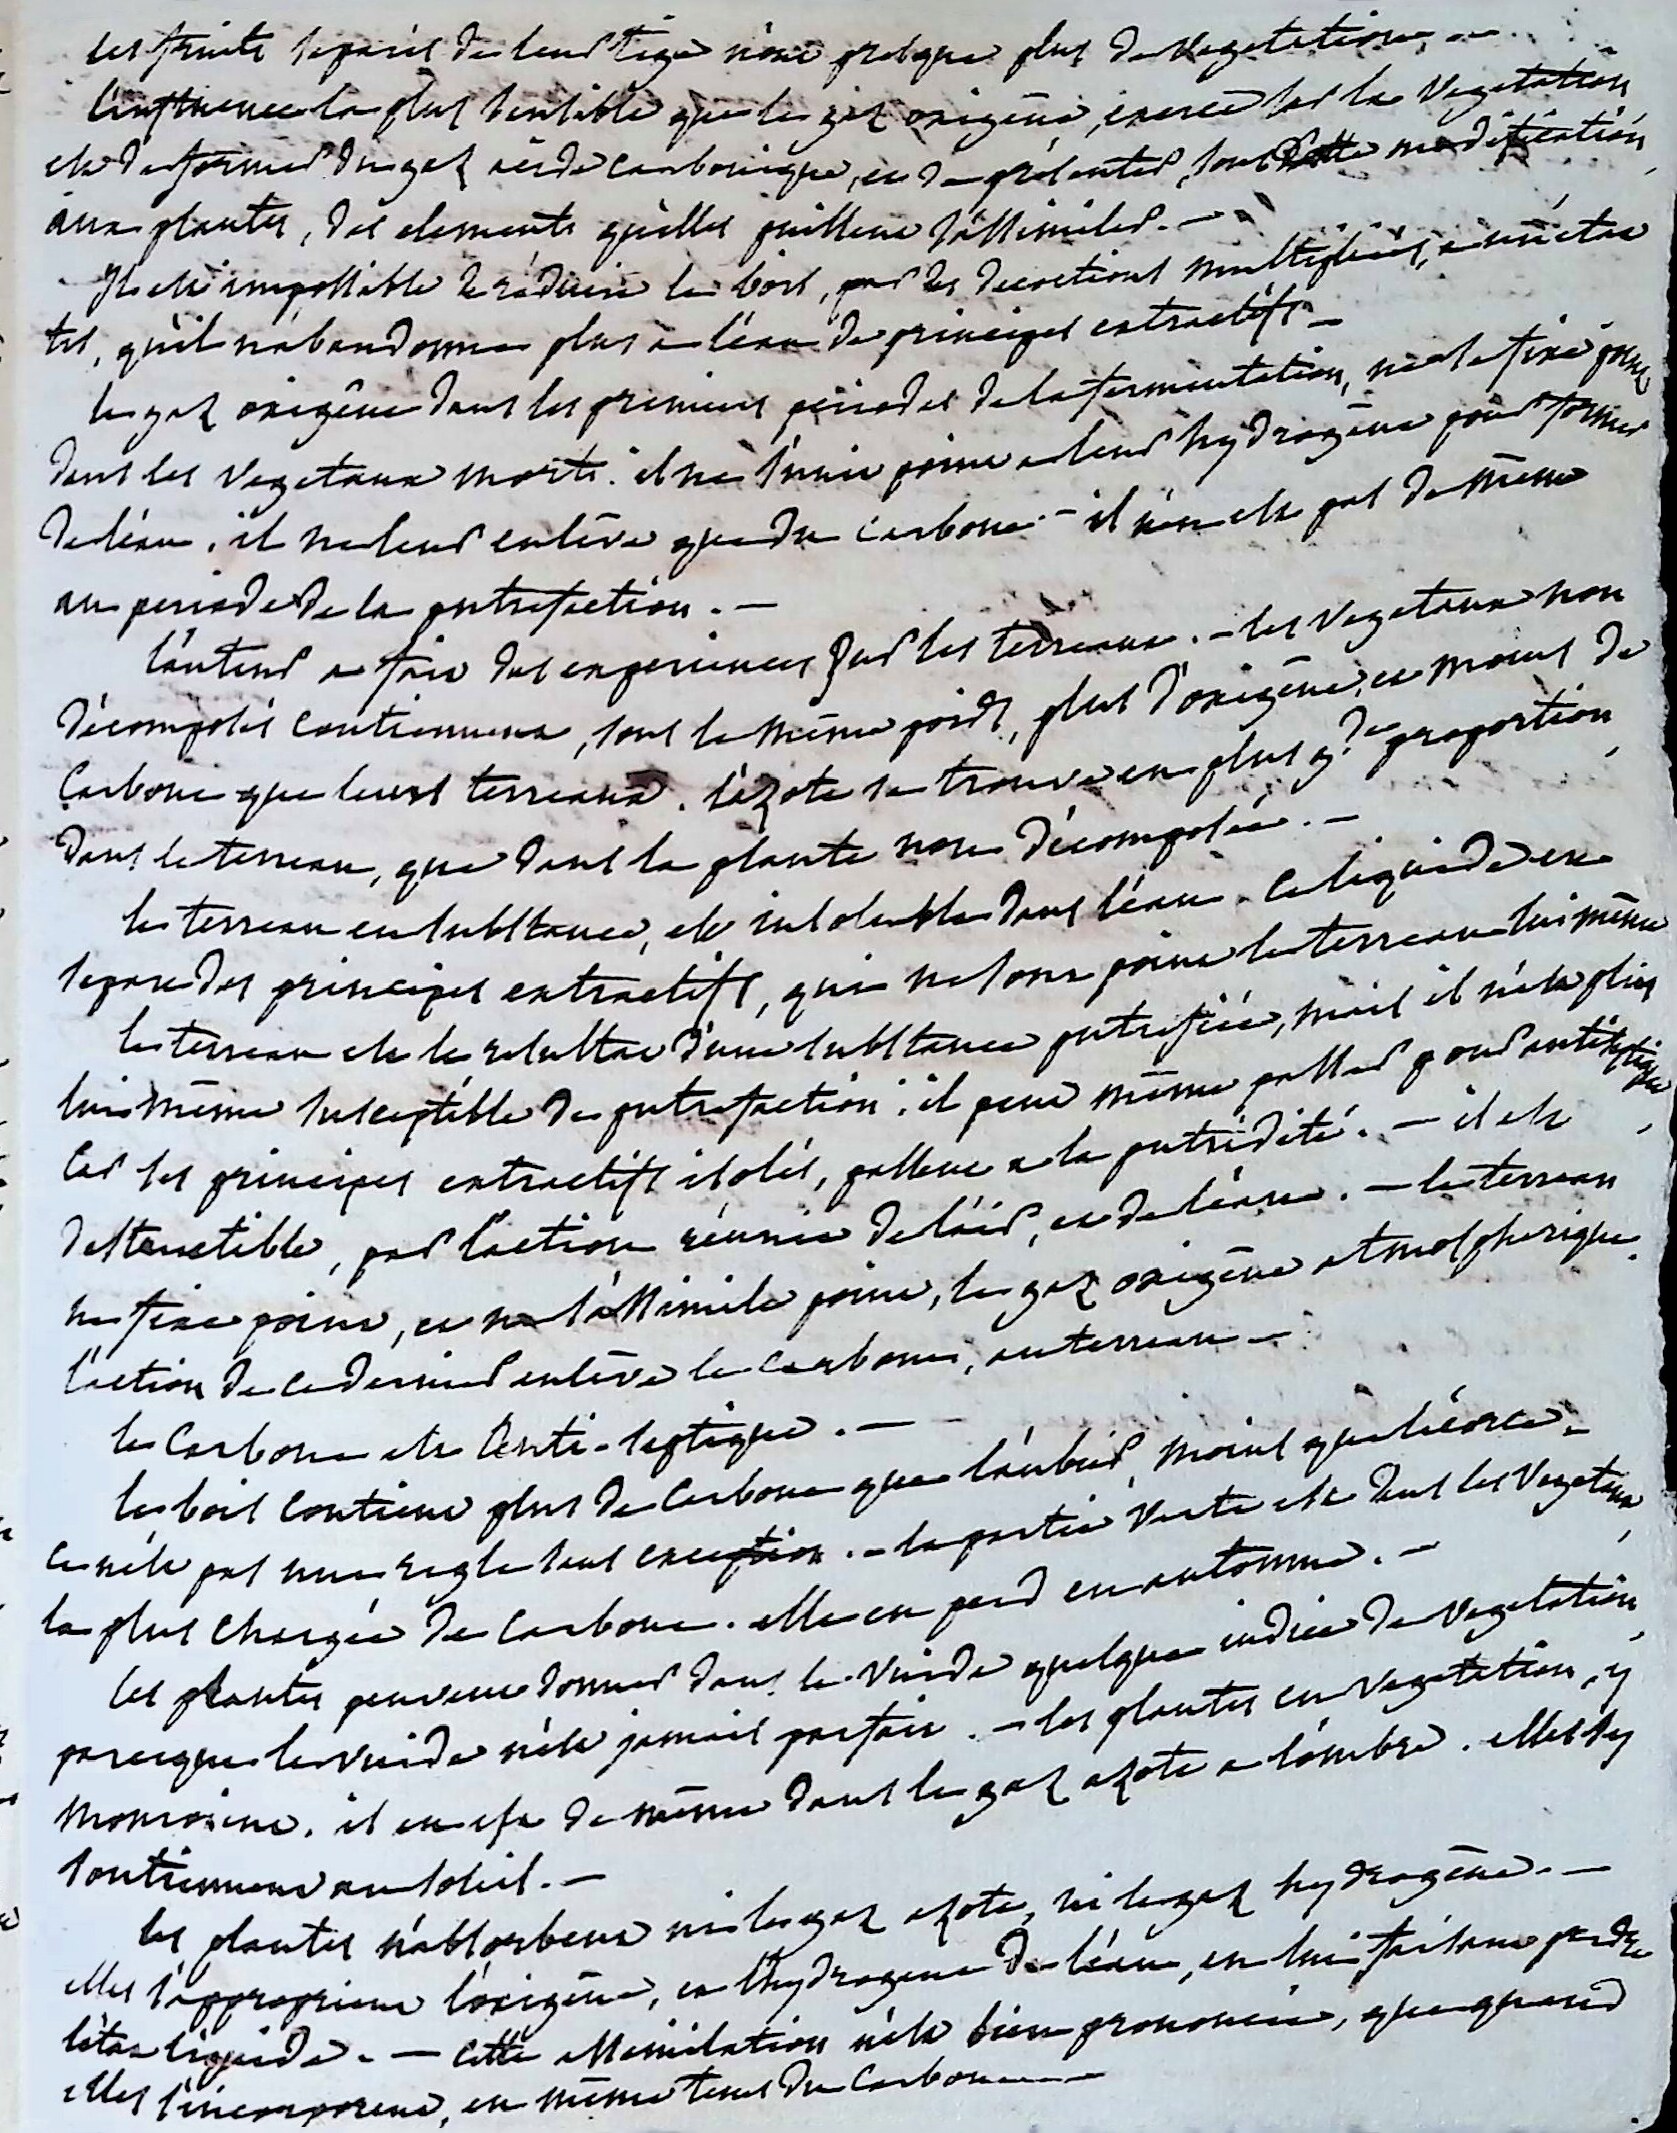 les fruits separés de leur tige n'ont presque plus de vegetation. —
L'influence la plus sensible que le gaz oxigène, exerce sur la vegetation
est de former du gaz acide carbonique, et de présenter, sous cette modification
aux plantes, des elements qu'elles puissent s'assimiler. —
Il est impossible de réduire le bois, par des decoctions multipliées, a un état
tel, qu'il n'abandonne plus a l'eau de principes extractifs —
le gaz oxigène dans les premieres periodes de la fermentation, ne se fixe point
dans les vegetaux morts. il ne s'unit point a leur hydrogène pour former
de l'eau. il ne leur enlève que du carbone. — il n'en est pas de même
au periode de la putrefaction. —
l'auteur a fait des experiences sur les terreaux. — les vegetaux non
décomposés contiennent, sous le même poids, plus d'oxigène, et moins de
carbone que leurs terreaux. l'azote se trouve en plus gde proportion
dans le terreau, que dans la plante non décomposée. —
le terreau en substance, est insoluble dans l'eau. ce liquide en
separe des principes extractifs, qui ne sont point le terreau lui même
le terreau est le resultat d'une substance putrefiée, mais il n'est plus
lui même susceptible de putrefaction. il peut même passer pour antiseptique
car ses principes extractifs isolés, passent a la putridité. — il est
destructible, par l'action réunie de l'air, et de l'eau. — le terreau
ne fixe point, et ne s'assimile point, le gaz oxigène atmospherique.
l'action de ce dernier enlève le carbone, au terreau —
le carbone est anti-septique. —
le bois contient plus de carbone que l'aubier, moins que l'écorce. —
ce n'est pas une regle sans exception. — la partie verte est dans les vegetaux
la plus chargée de carbone. elle en perd en automne. —
les plantes peuvent donner dans le vuide quelque indice de vegetation
parceque le vuide n'est jamais parfait. — les plantes en vegetation, y
mouroient. il en est de même dans le gaz azote a l'ombre. elles s'y
soutiennent au soleil. —
les plantes n'absorbent ni le gaz azote, ni le gaz hydrogène. —
elles s'approprient l'oxigène, et l'hydrogene de l'eau, en lui faisant perdre
l'état liquide. — cette assimilation n'est bien prononcée, que quand
elles s'incorporent, en même tems du carbone —